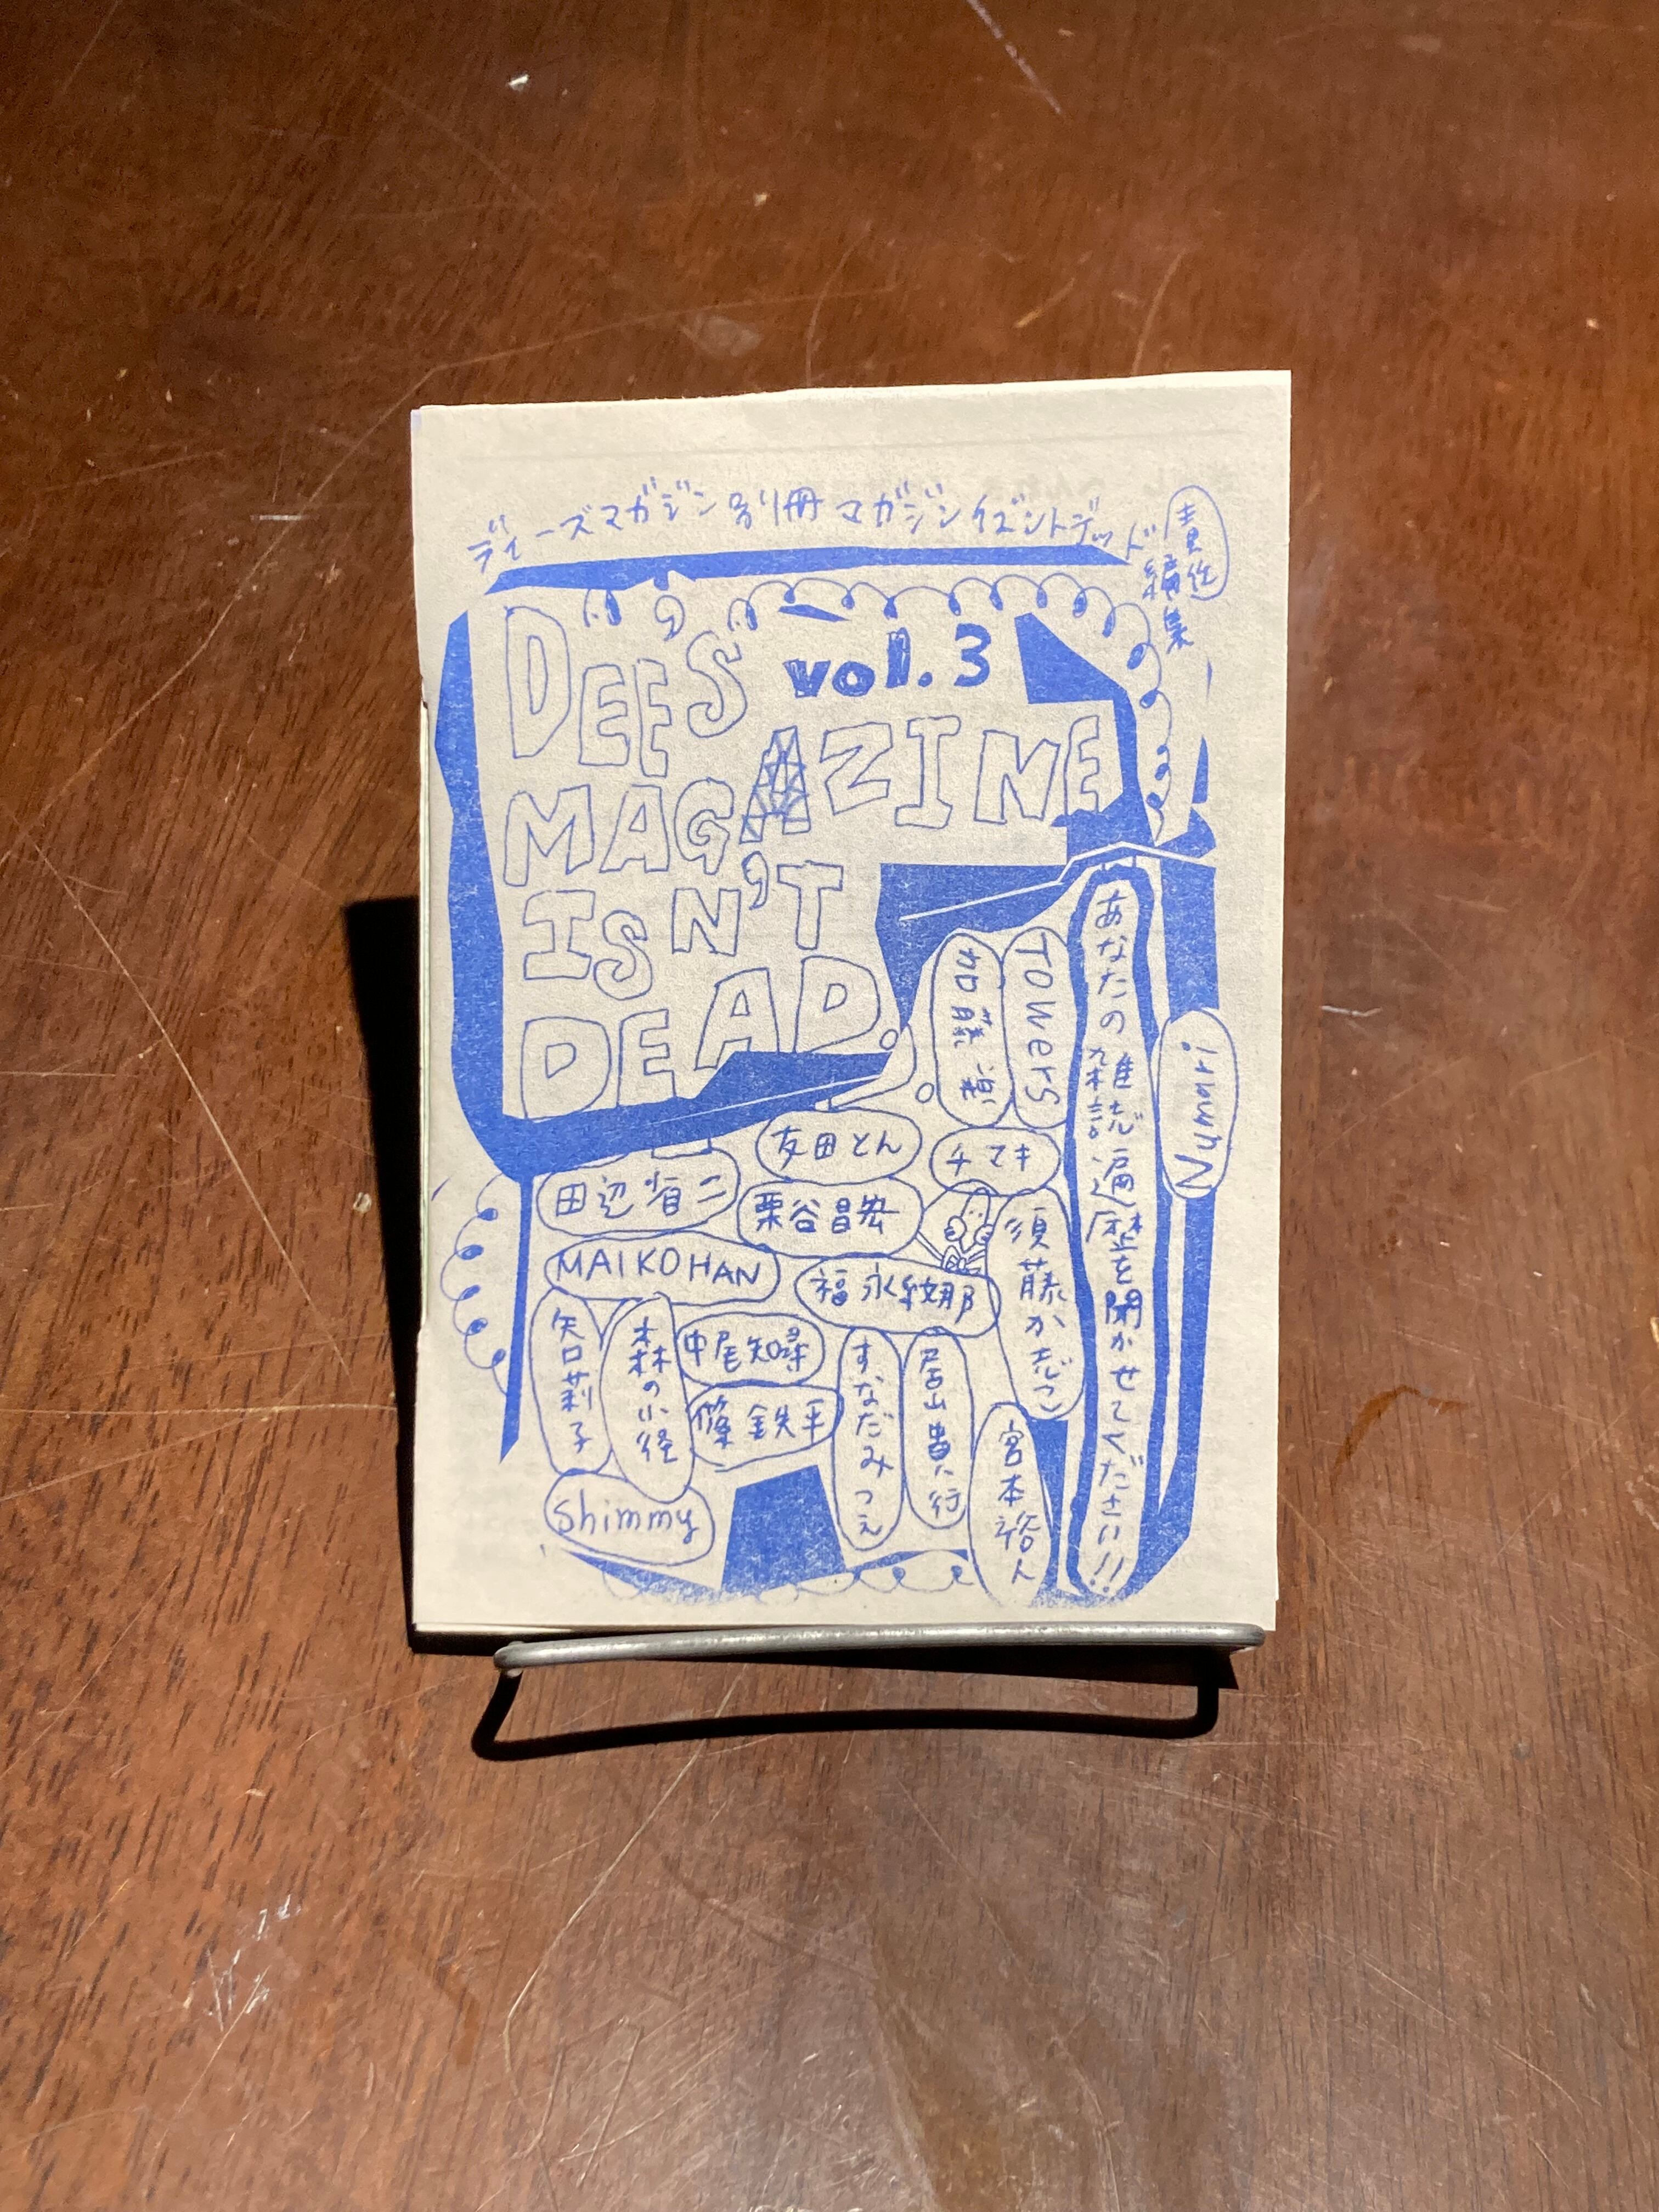 ディーズマガジン別冊 マガジンイズントデッド
責任
編集
DEE'S vol.3
MAGAZINE
ISN'T
DEAD.
あなたの雑誌遍歴を聞かせてください!!
Numuri
Towers
加藤
チマキ
友田とん
田辺省二
栗谷昌宏
MAIKOHAN
福永紋那
須藤か志こ
矢口莉子
森の小径
中尾知尋
篠鉄平
すなだみつえ
居山貴行
宮本裕人
shimmy